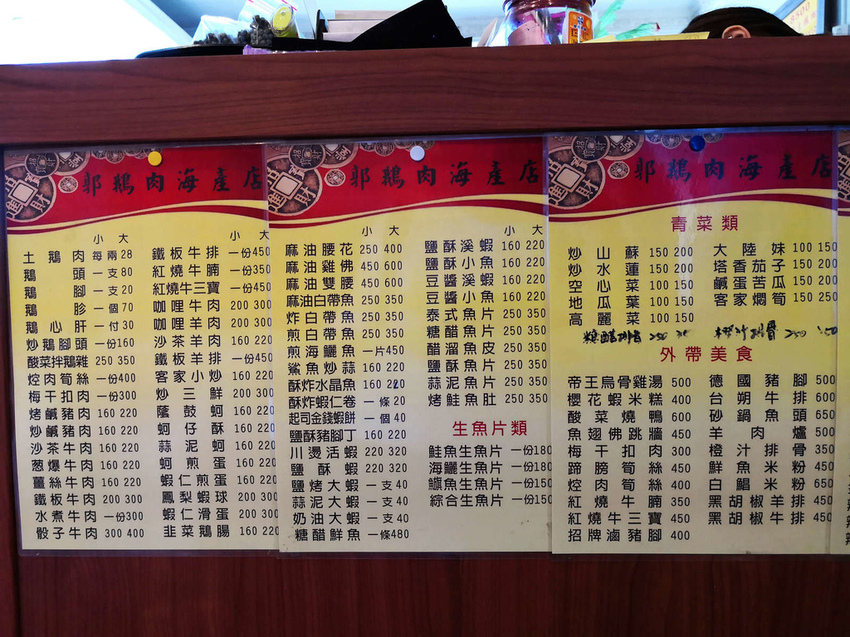 郭鵝肉海產店
小 大
土鵝肉 每兩28
鵝頭 一支80
鵝腳 一支20
鵝胗 一個70
鵝心肝 一付30
炒鵝腳頭 一份160
酸菜拌鵝雜 250 350
焢肉筍絲 一份400
梅干扣肉 一份300
烤鹹豬肉 160 220
炒鹹豬肉 160 220
沙茶牛肉 160 220
蔥爆牛肉 160 220
薑絲牛肉 160 220
鐵板牛肉 200 300
水煮牛肉 一份300
骰子牛肉 300 400
小 大
鐵板牛排 一份450
紅燒牛腩 一份350
紅燒牛三寶 一份450
咖哩牛肉 200 300
咖哩羊肉 200 300
沙茶羊肉 160 220
鐵板羊排 一份450
客家小炒 160 220
炒三鮮 200 300
蔭鼓蚵 160 220
蚵仔酥 160 220
蒜泥蚵 160 220
蚵煎蛋 160 220
蝦仁煎蛋 160 220
鳳梨蝦球 200 300
蝦仁滑蛋 200 300
韭菜鵝腸 160 220
郭鵝肉海產店
小 大
麻油腰花 250 400
麻油雞佛 450 600
麻油雙腰 450 600
麻油白帶魚 250 350
炸白帶魚 250 350
煎白帶魚 250 350
煎海鱺魚 一片450
鯊魚炒蒜 160 220
酥炸水晶魚 160 220
酥炸蝦仁卷 一條20
起司金錢蝦餅 一個40
鹽酥豬腳丁 160 220
川燙活蝦 220 320
鹽酥蝦 220 320
鹽烤大蝦 一支40
蒜泥大蝦 一支40
奶油大蝦 一支40
糖醋鮮魚 一條480
小 大
鹽酥溪蝦 160 220
鹽酥小魚 160 220
豆醬溪蝦 160 220
豆醬小魚 160 220
泰式魚片 160 220
糖醋魚片 160 220
醋溜魚皮 160 220
鹽酥魚片 160 220
蒜泥魚片 160 220
烤鮭魚肚 250 350
生魚片類
鮭魚生魚片 一份180
海鱺生魚片 一份180
旗魚生魚片 一份150
綜合生魚片 一份150
郭鵝肉海產店
青菜類
炒山蘇 150 200
炒水蓮 150 200
空心菜 100 150
地瓜葉 100 150
高麗菜 100 150
大陸妹 100 150
塔香茄子 150 200
鹹蛋苦瓜 150 200
客家燜筍 150 250
糖醋排骨 250 350
橙汁排骨 250 350
外帶美食
帝王烏骨雞湯 500
櫻花蝦米糕 400
酸菜燒鴨 600
魚翅佛跳牆 450
梅干扣肉 300
蹄膀筍絲 450
焢肉筍絲 400
紅燒牛腩 350
紅燒牛三寶 450
招牌滷豬腳 400
德國豬腳 600
台朔牛排 600
砂鍋魚頭 650
羊肉爐 500
橙汁排骨 350
鮮魚米粉 450
白鯧米粉 650
黑胡椒羊排 450
黑胡椒牛排 450